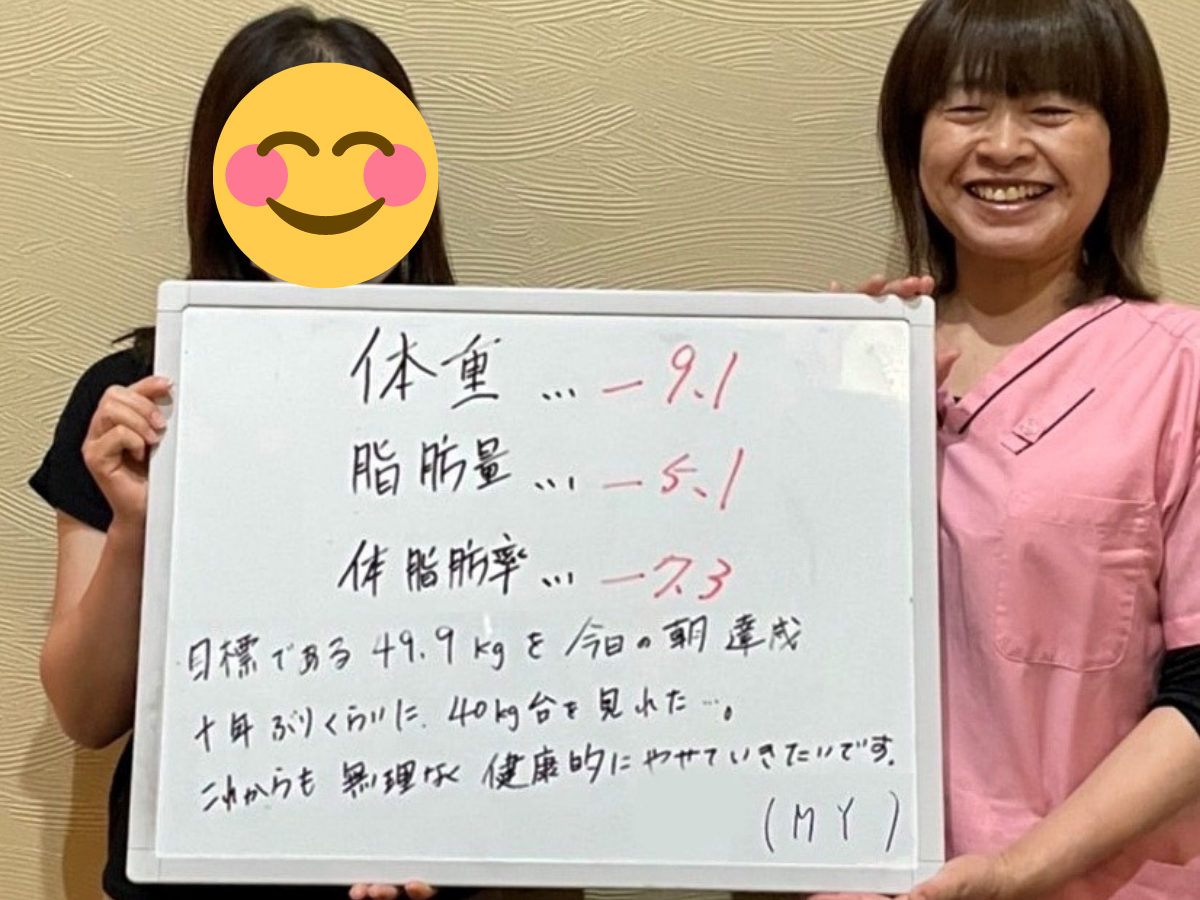 体重 … −9.1
脂肪量 … −5.1
体脂肪率 … −7.3
目標である 49.9kgを 今日の朝 達成
十年ぶりくらいに、40kg台を見れた…。
これからも 無理なく 健康的にやせていきたいです。
(MY)